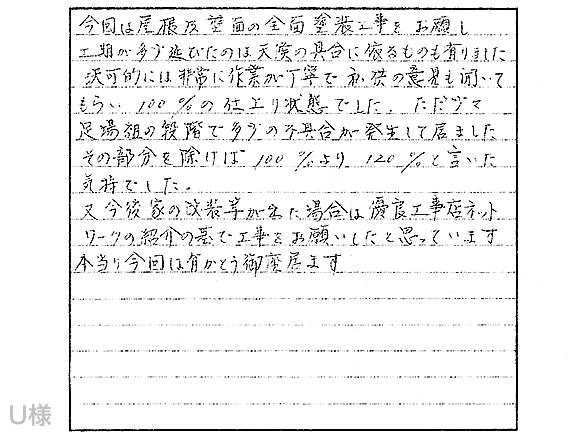 今回は屋根及壁面の全面塗装工事をお願し
工期が多少延びたのは天候の具合に依るものも有りました
決可的には非常に作業が丁寧で私供の意見も聞いて
もらい100%の仕上り状態でした。ただ少々
足場組の段階で多少の不具合が発生して居ました
その部分を除けば100%より120%と言いた
気持でした。
又今後家の改装等が出た場合は優良工事店ネット
ワークの紹介の基で工事をお願いしたと思っています
本当り今回は有がとう御座居ます
U様